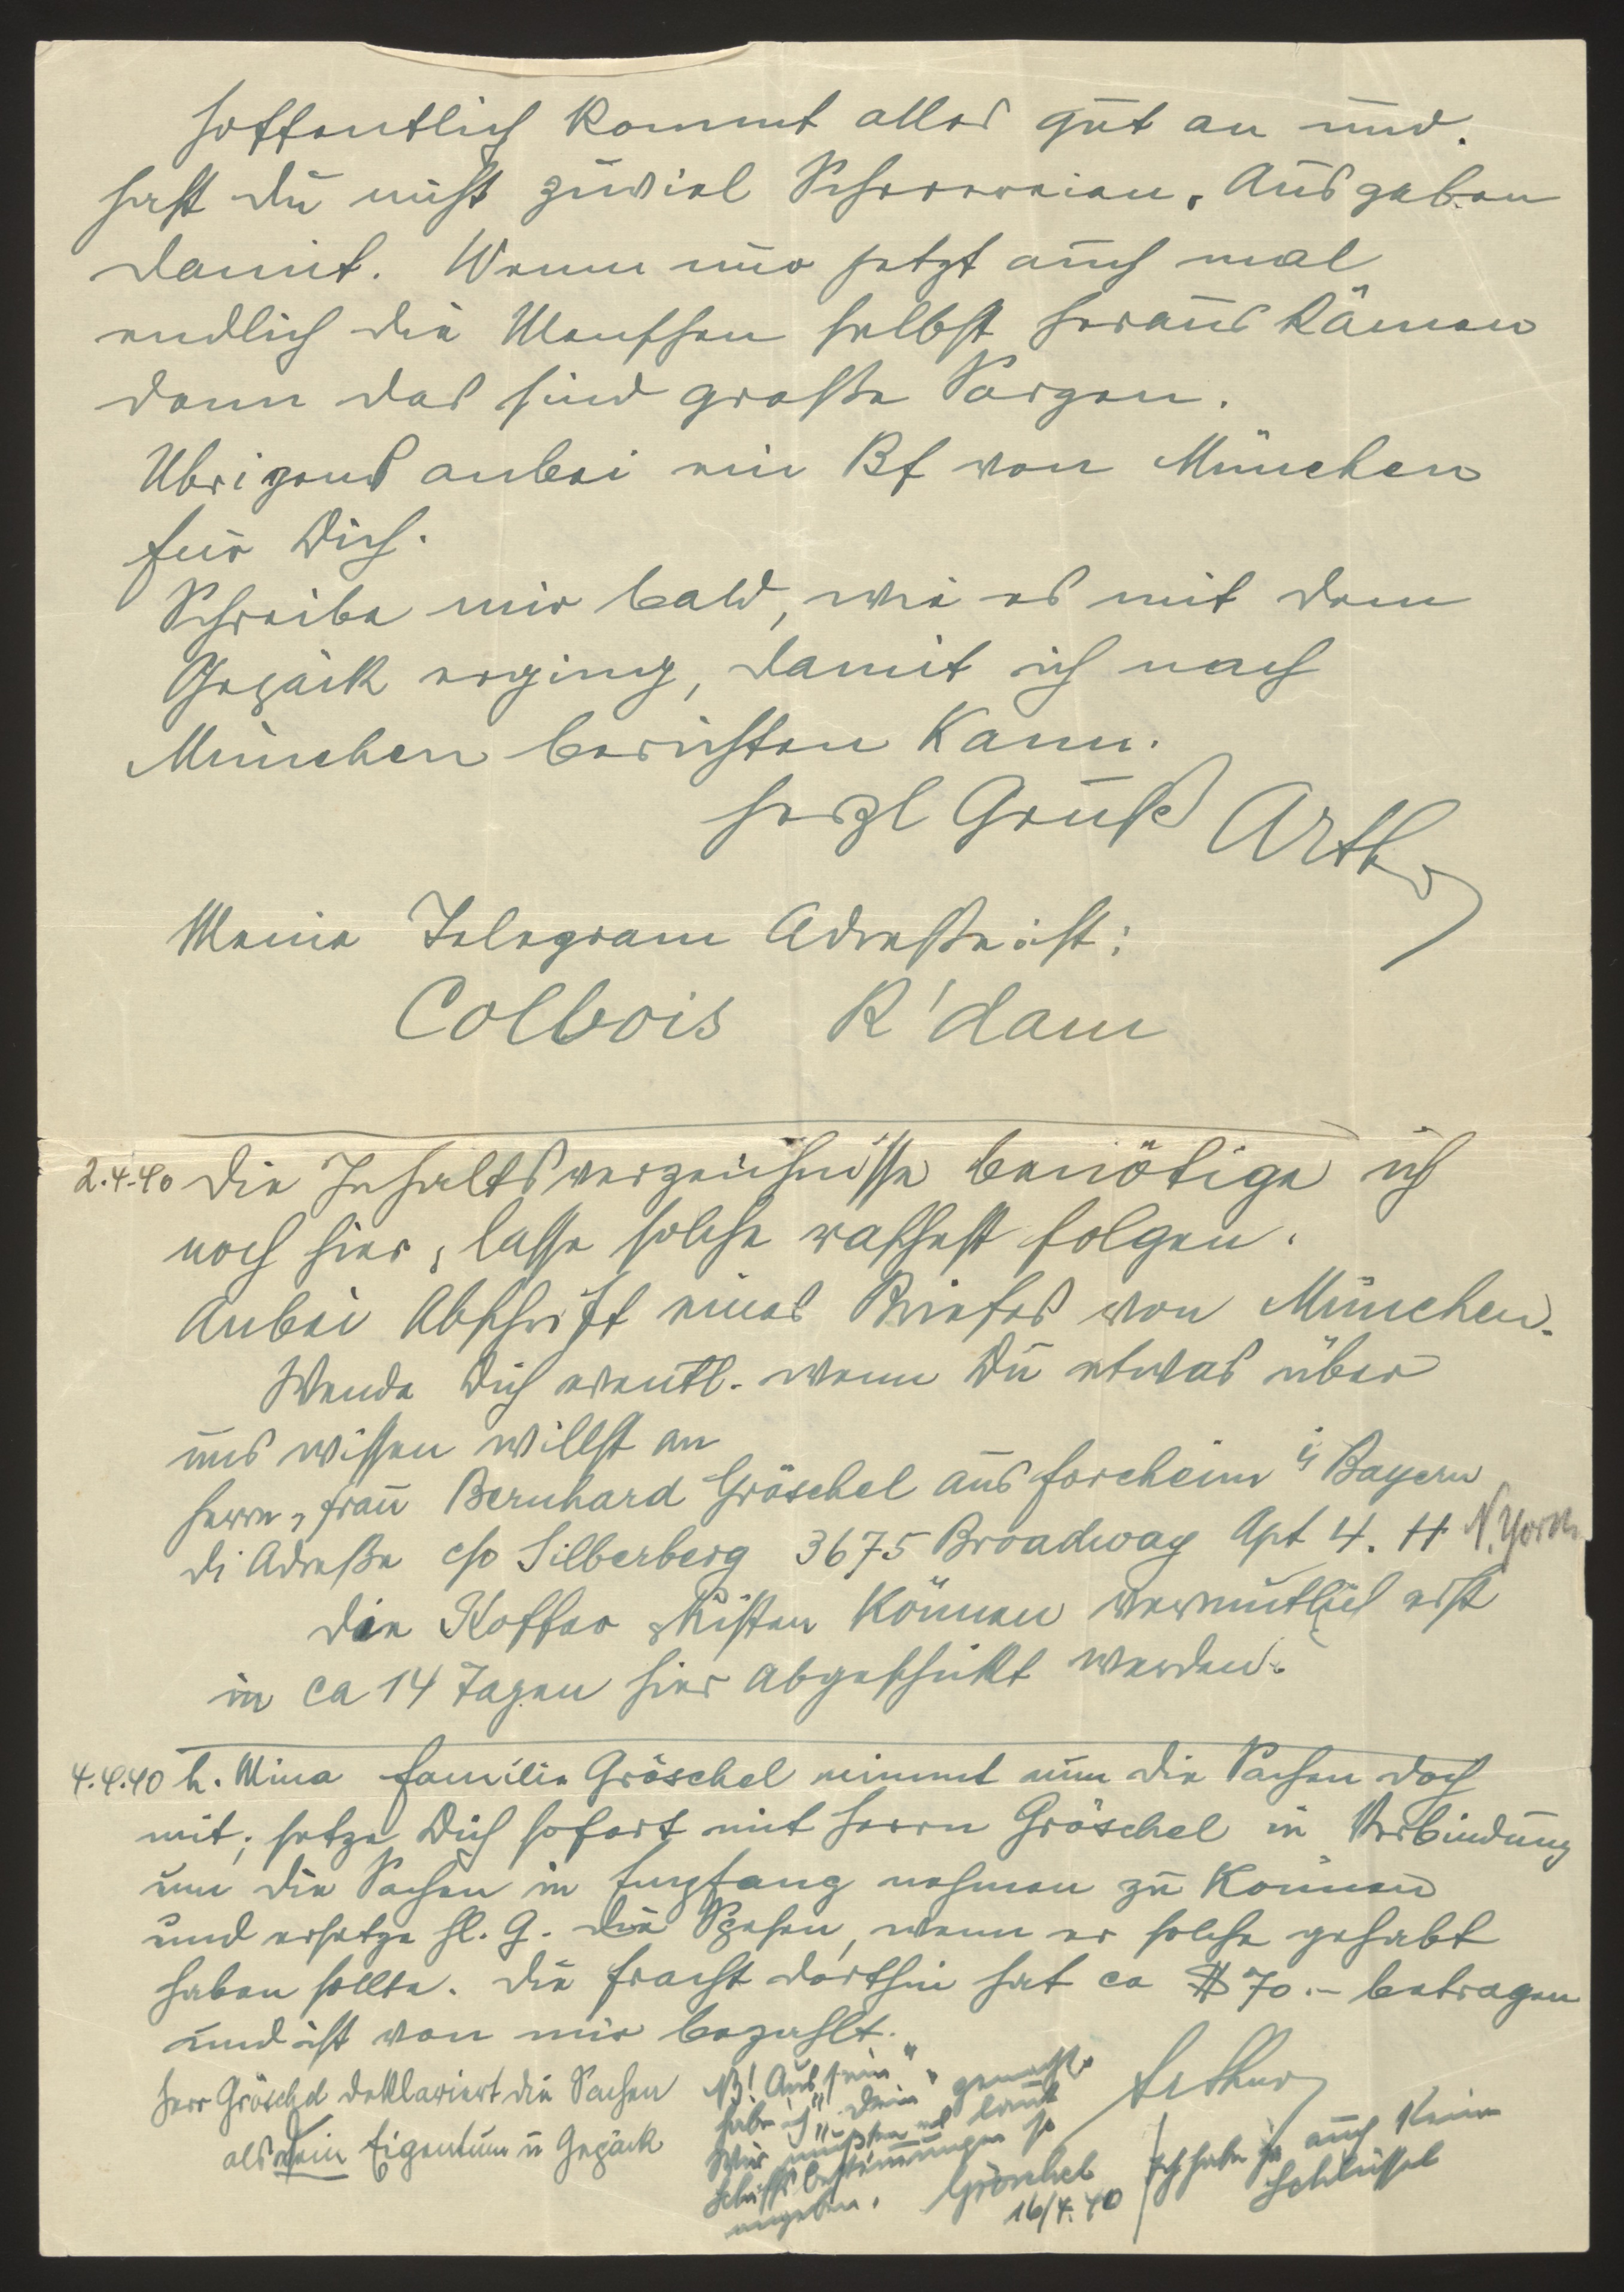 Hoffentlich kommt alles gut an und
hast Du nicht zuviel Scherereien, Ausgaben
damit. Wenn nur jetzt auch mal
endlich die Menschen selbst heraus kämen
denn das sind große Sorgen.
Übrigens anbei ein Bf von München
für Dich.
Schreibe mir bald, wie es mit dem
Gepäck erging, damit ich nach
München berichten kann.
Herzl Gruß Arthur
Meine Telegram Adreße ist:
Colbois R'dam
2.4.40 Die Inhaltsverzeichnisse benötige ich
noch hier, lasse solche raschest folgen.
Anbei Abschrift eines Briefes von München.
Wende Dich eventl. wenn Du etwas über
uns wissen willst an
Herrn, Frau Bernhard Gröschel aus Forcheim i/ Bayern
di Adreße c/o Silberberg 3675 Broadway Apt 4. H N.York
Die Koffer & Kisten können vermutlich erst
in ca 14 Tagen hier abgeschickt werden.
4.4.40 l. Mina Familie Gröschel nimmt nun die Sachen doch
mit; setze Dich sofort mit Herrn Gröschel in Verbindung
um die Sachen in Empfang nehmen zu können
und ersetze H. G. die Spesen, wenn er solche gehabt
haben sollte. Die Fracht dorthin hat ca $ 70.- betragen
und ist von mir bezahlt.
Arthur
Herr Gröschel deklariert die Sachen
als sein Eigentum u Gepäck
NB! Aus "sein"
habe ich "Dein" gemacht.
Wir mußten es laut
Schiffsbestimmungen so
angeben. Gröschel
16/4.40
Ich habe ja auch keine
Schlüssel